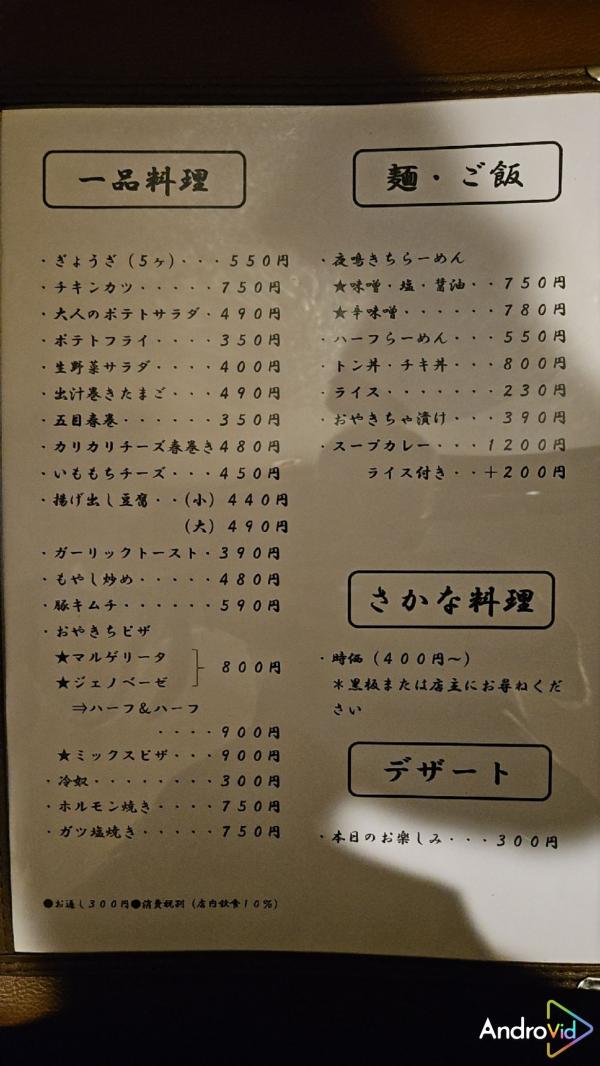 一品料理
・ぎょうざ（5ヶ）・・・550円
・チキンカツ・・・・・750円
・大人のポテトサラダ・490円
・ポテトフライ・・・・350円
・生野菜サラダ・・・・400円
・出汁巻きたまご・・・490円
・五目春巻・・・・・・350円
・カリカリチーズ春巻き480円
・いももちチーズ・・・450円
・揚げ出し豆腐・・（小）440円
（大）490円
・ガーリックトースト・390円
・もやし炒め・・・・・480円
・豚キムチ・・・・・・590円
・おやきちピザ
★マルゲリータ
★ジェノベーゼ
800円
⇒ハーフ＆ハーフ
・・・・900円
★ミックスピザ・・・900円
・冷奴・・・・・・・・300円
・ホルモン焼き・・・・750円
・ガツ塩焼き・・・・・750円
●お通し300円●消費税別（店内飲食10％）
麺・ご飯
・夜鳴きちらーめん
★味噌・塩・醤油・・750円
★辛味噌・・・・・・780円
・ハーフらーめん・・・550円
・トン丼・チキ丼・・・800円
・ライス・・・・・・・230円
・おやきちゃ漬け・・・390円
・スープカレー・・・1200円
ライス付き・・＋200円
さかな料理
・時価（400円〜）
＊黒板または店主にお尋ねくだ
さい
デザート
・本日のお楽しみ・・・300円
AndroVid